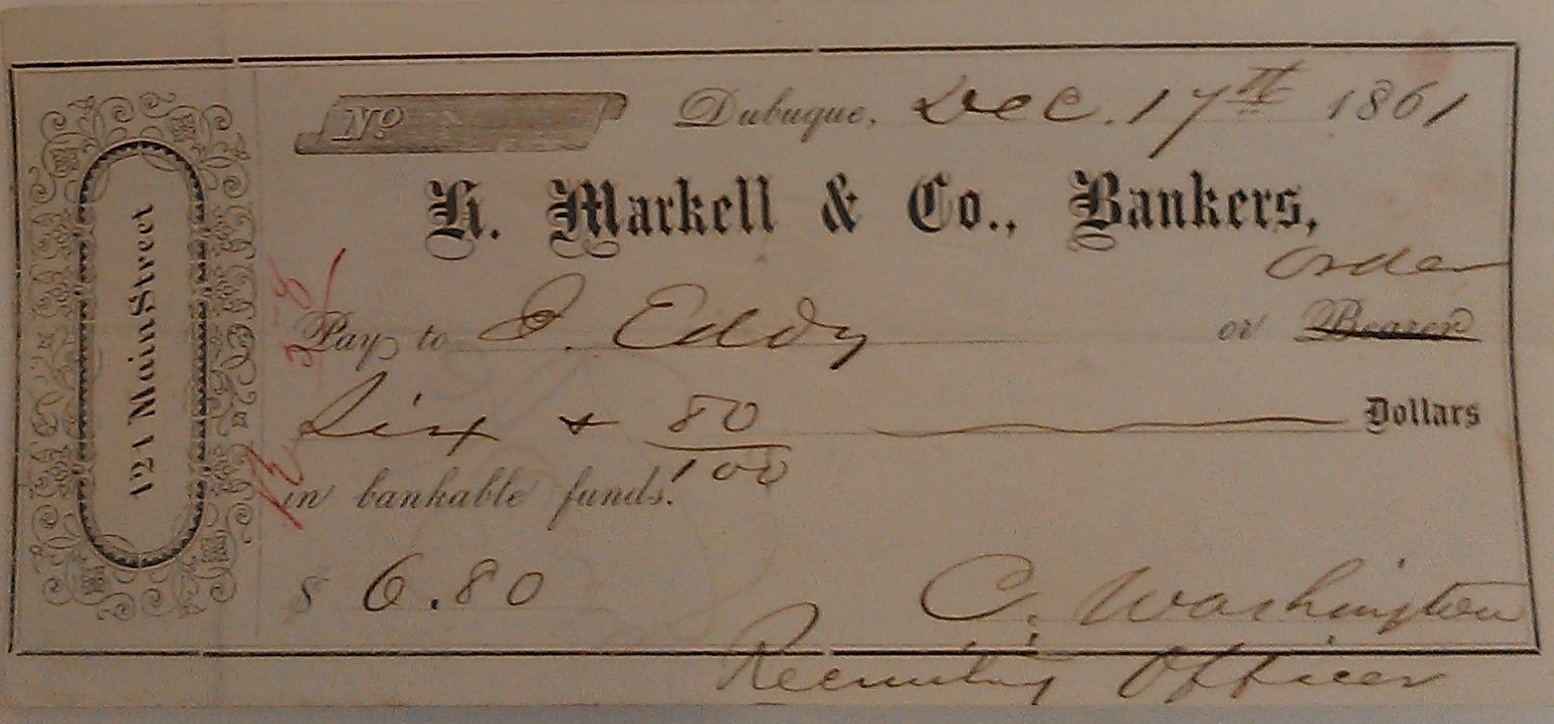 No Dubuque, Dec. 17th 1861
H. Markell & Co., Bankers,
order
Pay to I. Eddy or Bearer
Six & 80/100 Dollars
in bankable funds.
$ 6.80
C. Washington
Recruiting Officer
121 Main Street